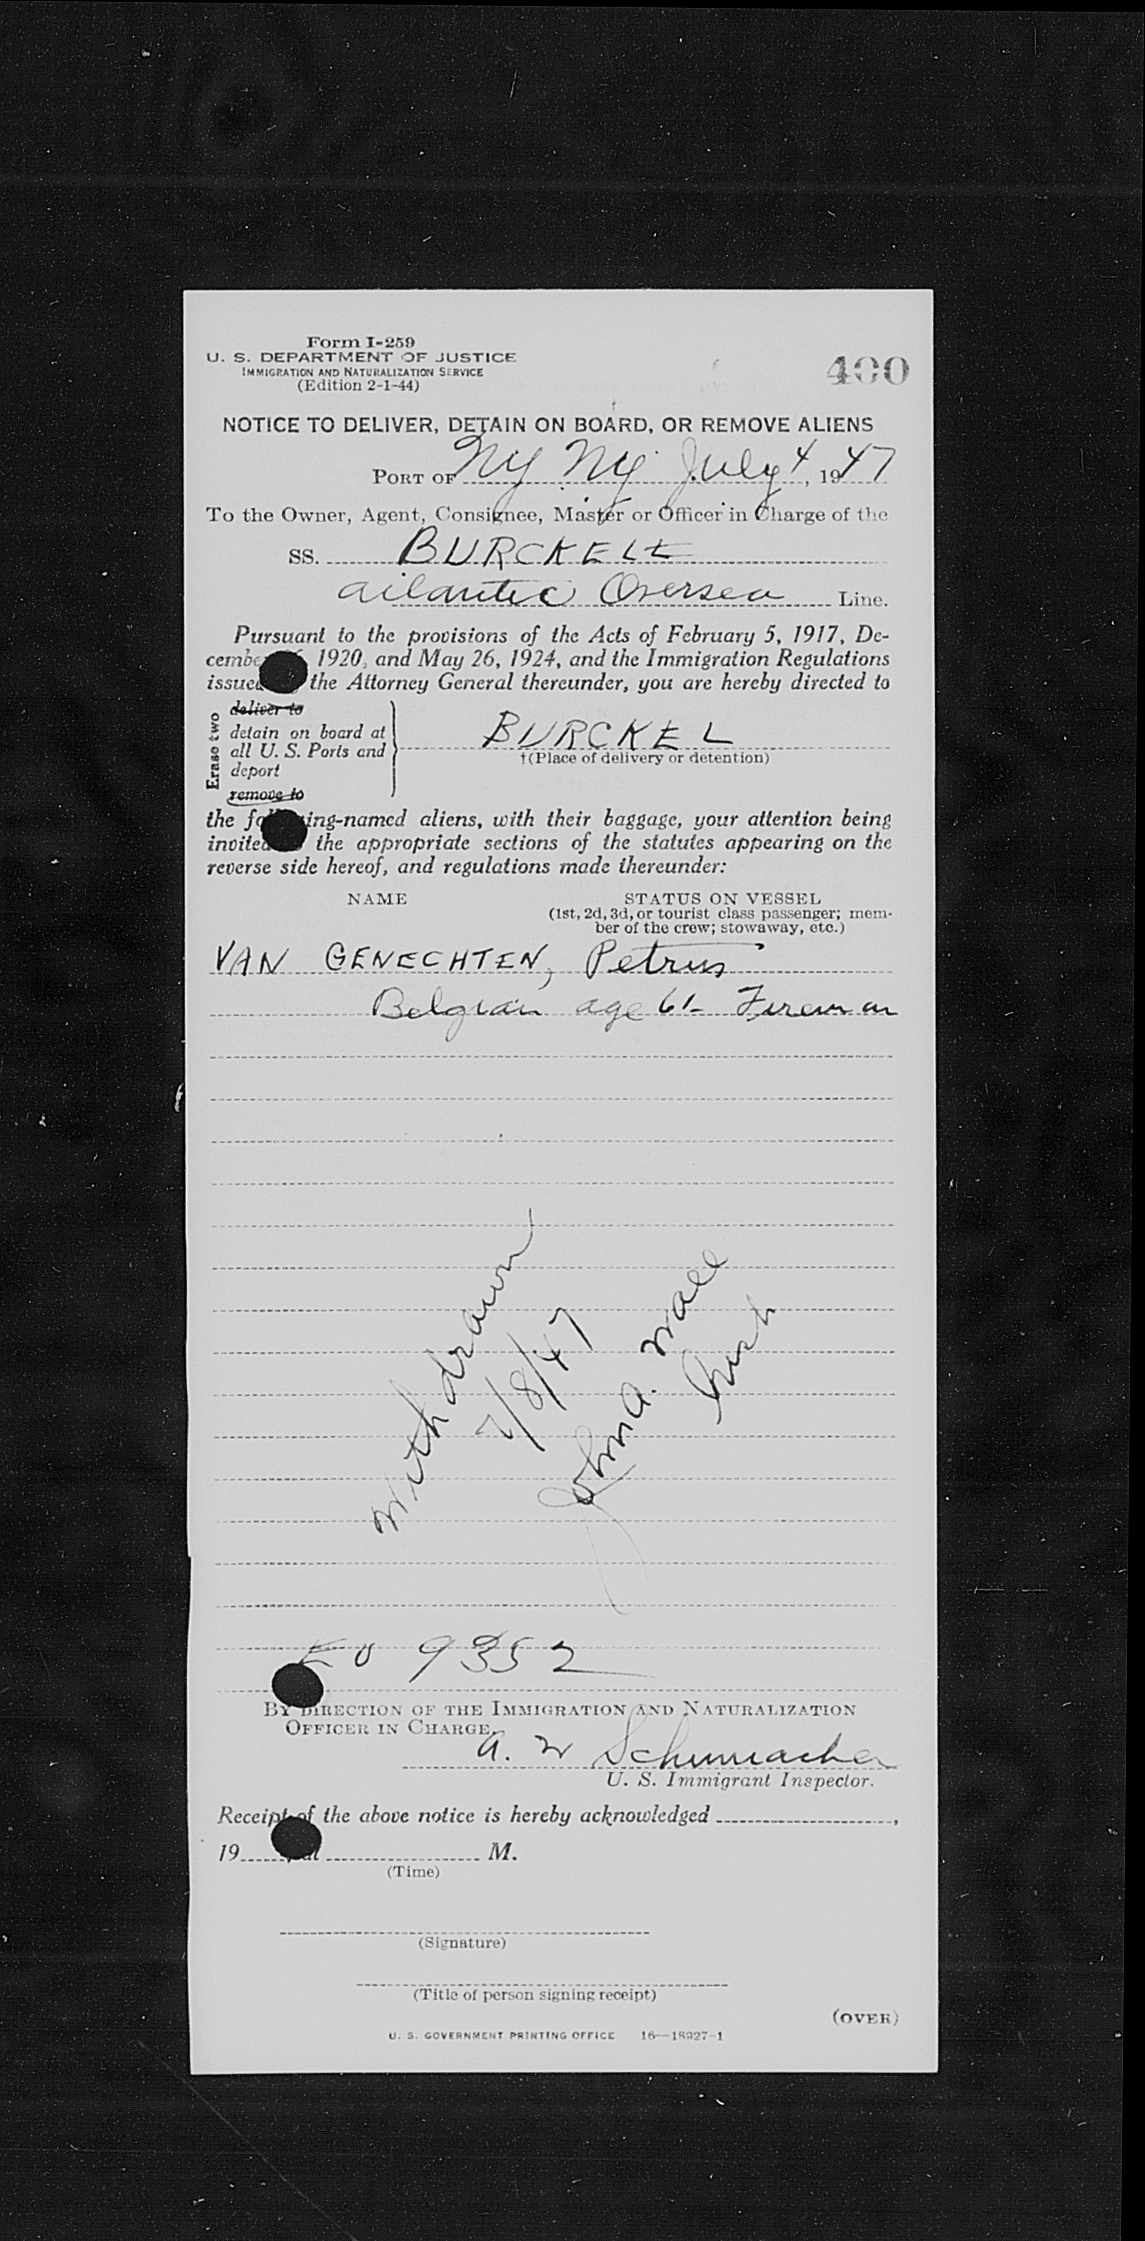 Form I-259
U. S. DEPARTMENT OF JUSTICE
IMMIGRATION AND NATURALIZATION SERVICE
(Edition 2-1-44)
400
NOTICE TO DELIVER, DETAIN ON BOARD, OR REMOVE ALIENS
PORT OF NY NY July 4, 1947
To the Owner, Agent, Consignee, Master or Officer in Charge of the
SS. BURCKEL
Atlantic Oversea Line.
Pursuant to the provisions of the Acts of February 5, 1917, De-
cember 1920, and May 26, 1924, and the Immigration Regulations
issued the Attorney General thereunder, you are hereby directed to
Erase two
deliver to
detain on board at
all U. S. Ports and
deport
remove to
BURCKEL
†(Place of delivery or detention)
the following-named aliens, with their baggage, your attention being
invited the appropriate sections of the statutes appearing on the
reverse side hereof, and regulations made thereunder:
NAME STATUS ON VESSEL
(1st, 2d, 3d, or tourist class passenger; mem-
ber of the crew; stowaway, etc.)
VAN GENECHTEN, Petrus
Belgian age 61- Fireman
Withdrawn
7/8/47
John A. Wall
EO 9352
BY DIRECTION OF THE IMMIGRATION AND NATURALIZATION
OFFICER IN CHARGE.
A. W Schumacher
U. S. Immigrant Inspector.
Receipt of the above notice is hereby acknowledged ,
19 , at M.
(Time)
(Signature)
(Title of person signing receipt)
(OVER)
U. S. GOVERNMENT PRINTING OFFICE 16—18927-1